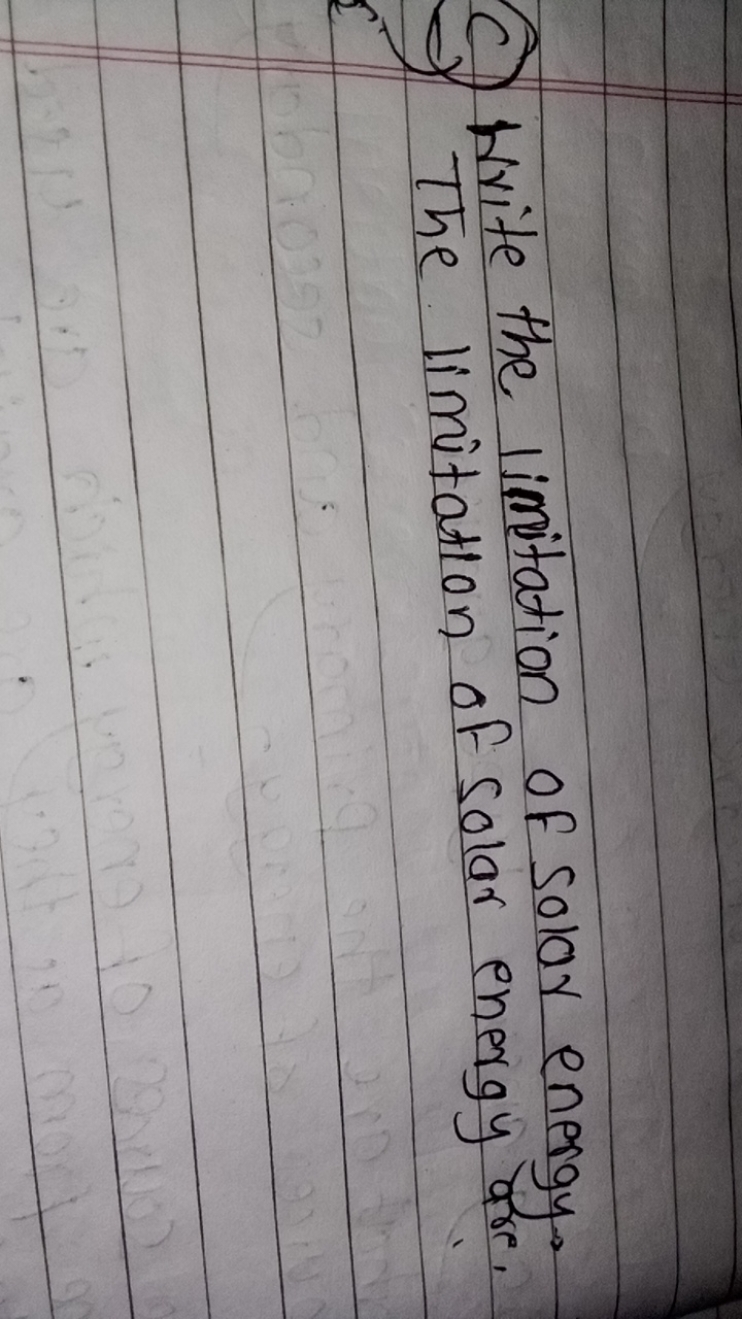 C) Write the limitation of solar energy→
The limitation of solar energy are,